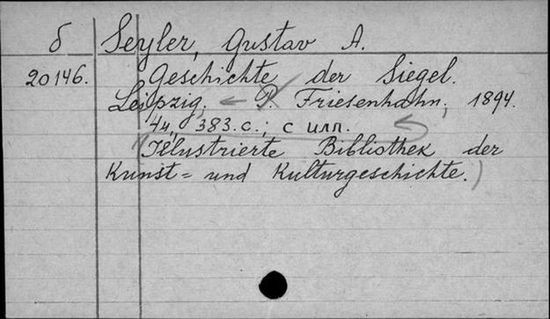 б Seyler, Gustav A.
20146. Geschichte der Siegel.
Leipzig, P. Friesenhahn, 1894.
383.с.; с илл.
(Illustrierte Bibliothek der
Kunst= und Kulturgeschichte.)